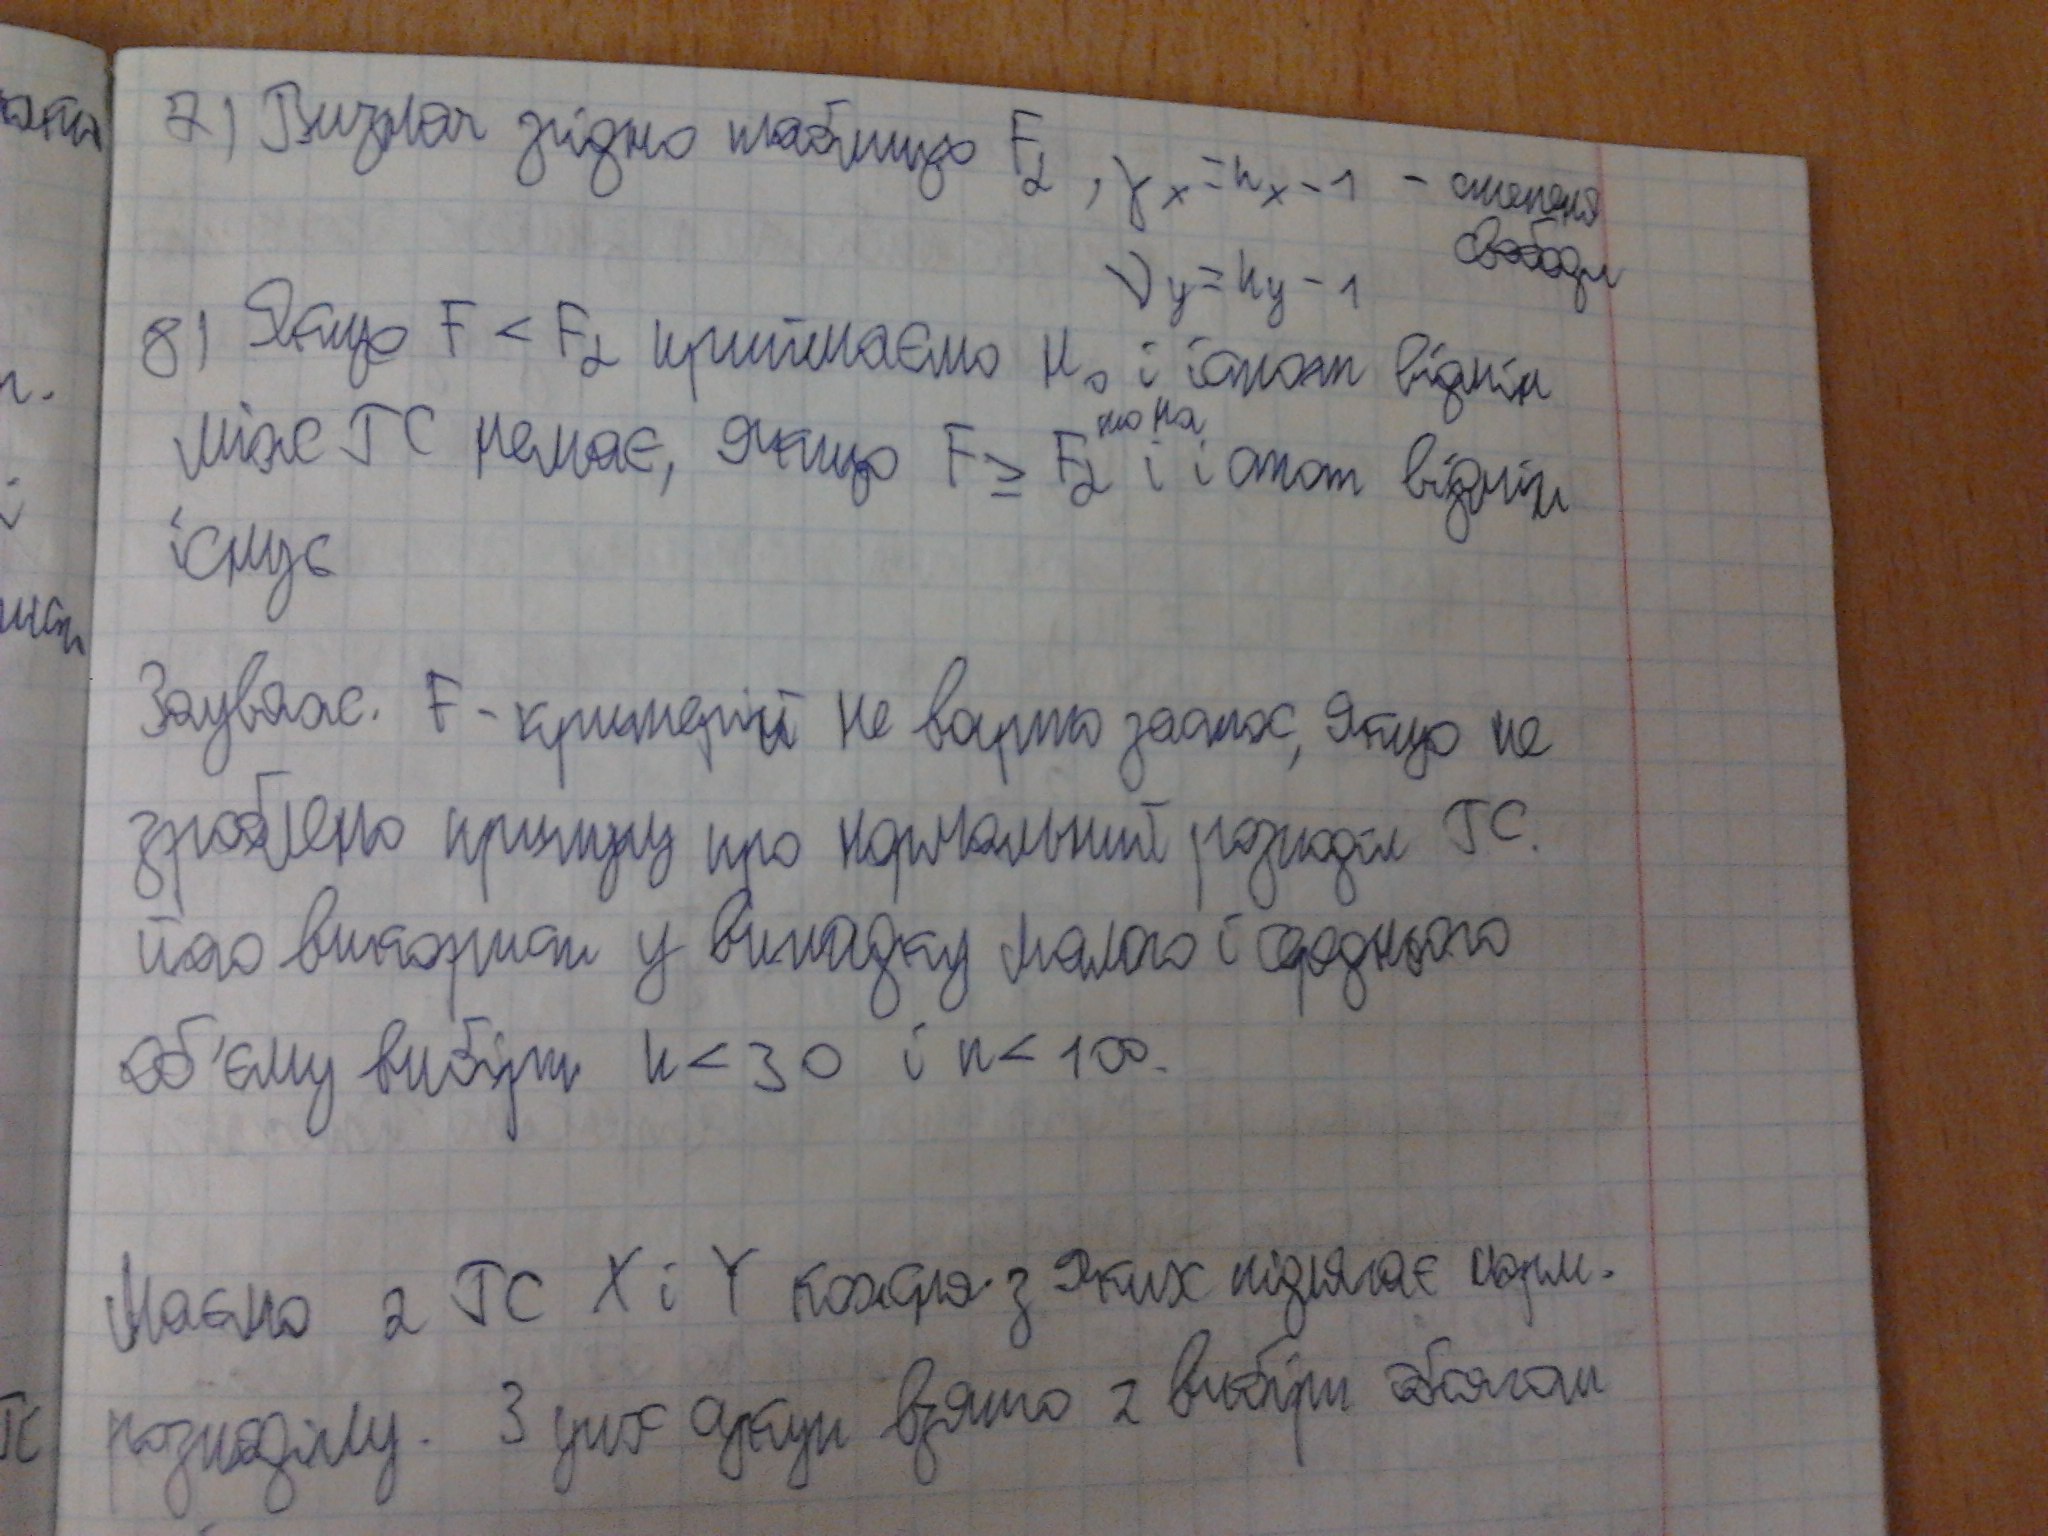 7) Визнач згідно таблицю Fα, γx = nx - 1 - степеня
свободи
νy = ny - 1
8) Якщо F < Fα приймаємо H₀ і істот відмін
між ГС немає, якщо F ≥ Fα то На і істот відмін
існує
Зауваж. F - критерій не варто застос, якщо не
зроблено припущ про нормальний розподіл ГС.
його використ у випадку малого і середнього
об'єму вибірки n < 30 і n < 100.
Маємо 2 ГС X і Y кожна з яких підлягає норм.
розподілу. З цих сукуп взято 2 вибірки обсягом